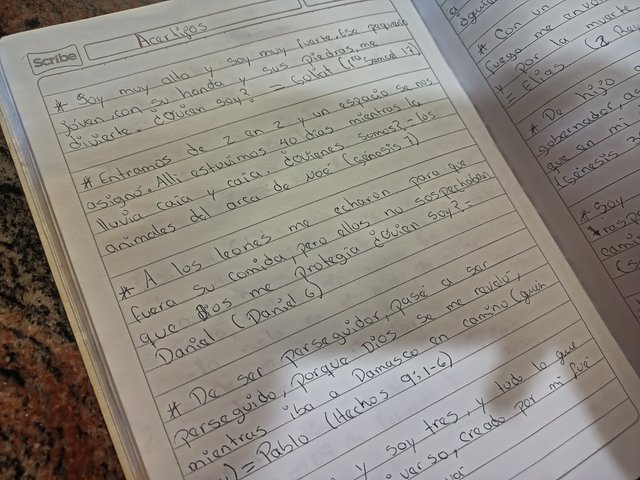 Scribe
Acertijos
* Soy muy alto y soy muy fuerte. Ese pequeño
joven con su honda y sus piedras me
divierte. ¿Quien soy? = Goliat (1ra Samuel 17)
* Entramos de 2 en 2 y un espacio se nos
asignó. Alli estuvimos 40 días mientras la
lluvia caia y caia. ¿Quienes somos? = los
animales del arca de Noé (Génesis 7)
* A los leones me echaron para que
fuera su comida, pero ellos no sospechaban
que Dios me protegía ¿Quien soy? =
Daniel (Daniel 6)
* De ser perseguidor, pasé a ser
perseguido, porque Dios se me reveló,
mientras iba a Damasco en camino (¿Quién
= Pablo (Hechos 9:1-6)
y soy tres, y todo lo que
verso, creado por mi fué
* Con un
fuego me
y por la muerte
= Elías (2 Rey
* De hijo
gobernador,
que en mi
(Génesis 3
* Soy